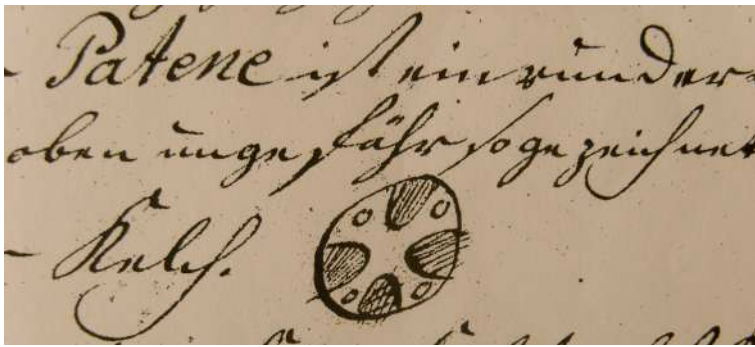 - Patene ist ein runder
oben ungefähr so gezeichnet
- Kelch.